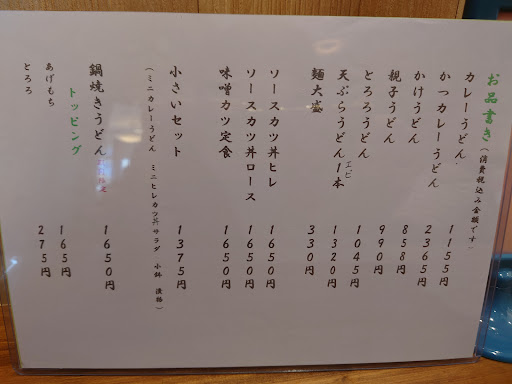 お品書き(消費税込み金額です)
カレーうどん 1155円
かつカレーうどん 2365円
かけうどん 858円
親子うどん 990円
とろろうどん 1045円
天ぷらうどんエビ1本 1320円
麺大盛 330円
ソースカツ丼ヒレ 1650円
ソースカツ丼ロース 1650円
味噌カツ定食 1650円
小さいセット 1375円
(ミニカレーうどん ミニヒレカツ丼 サラダ 小鉢 漬物)
鍋焼きうどん 1650円
トッピング
あげもち 165円
とろろ 275円